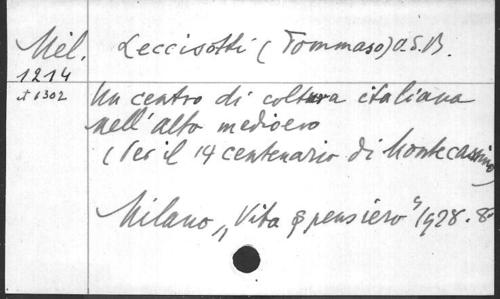 Mél. Leccisotti (Tommaso) O.S.B.
1214
et 1302 Un centro di coltura italiana
nell'alto medioevo
(Per il 14 centenario di Montecassino)
Milano, "Vita e pensiero" 1928. 8º